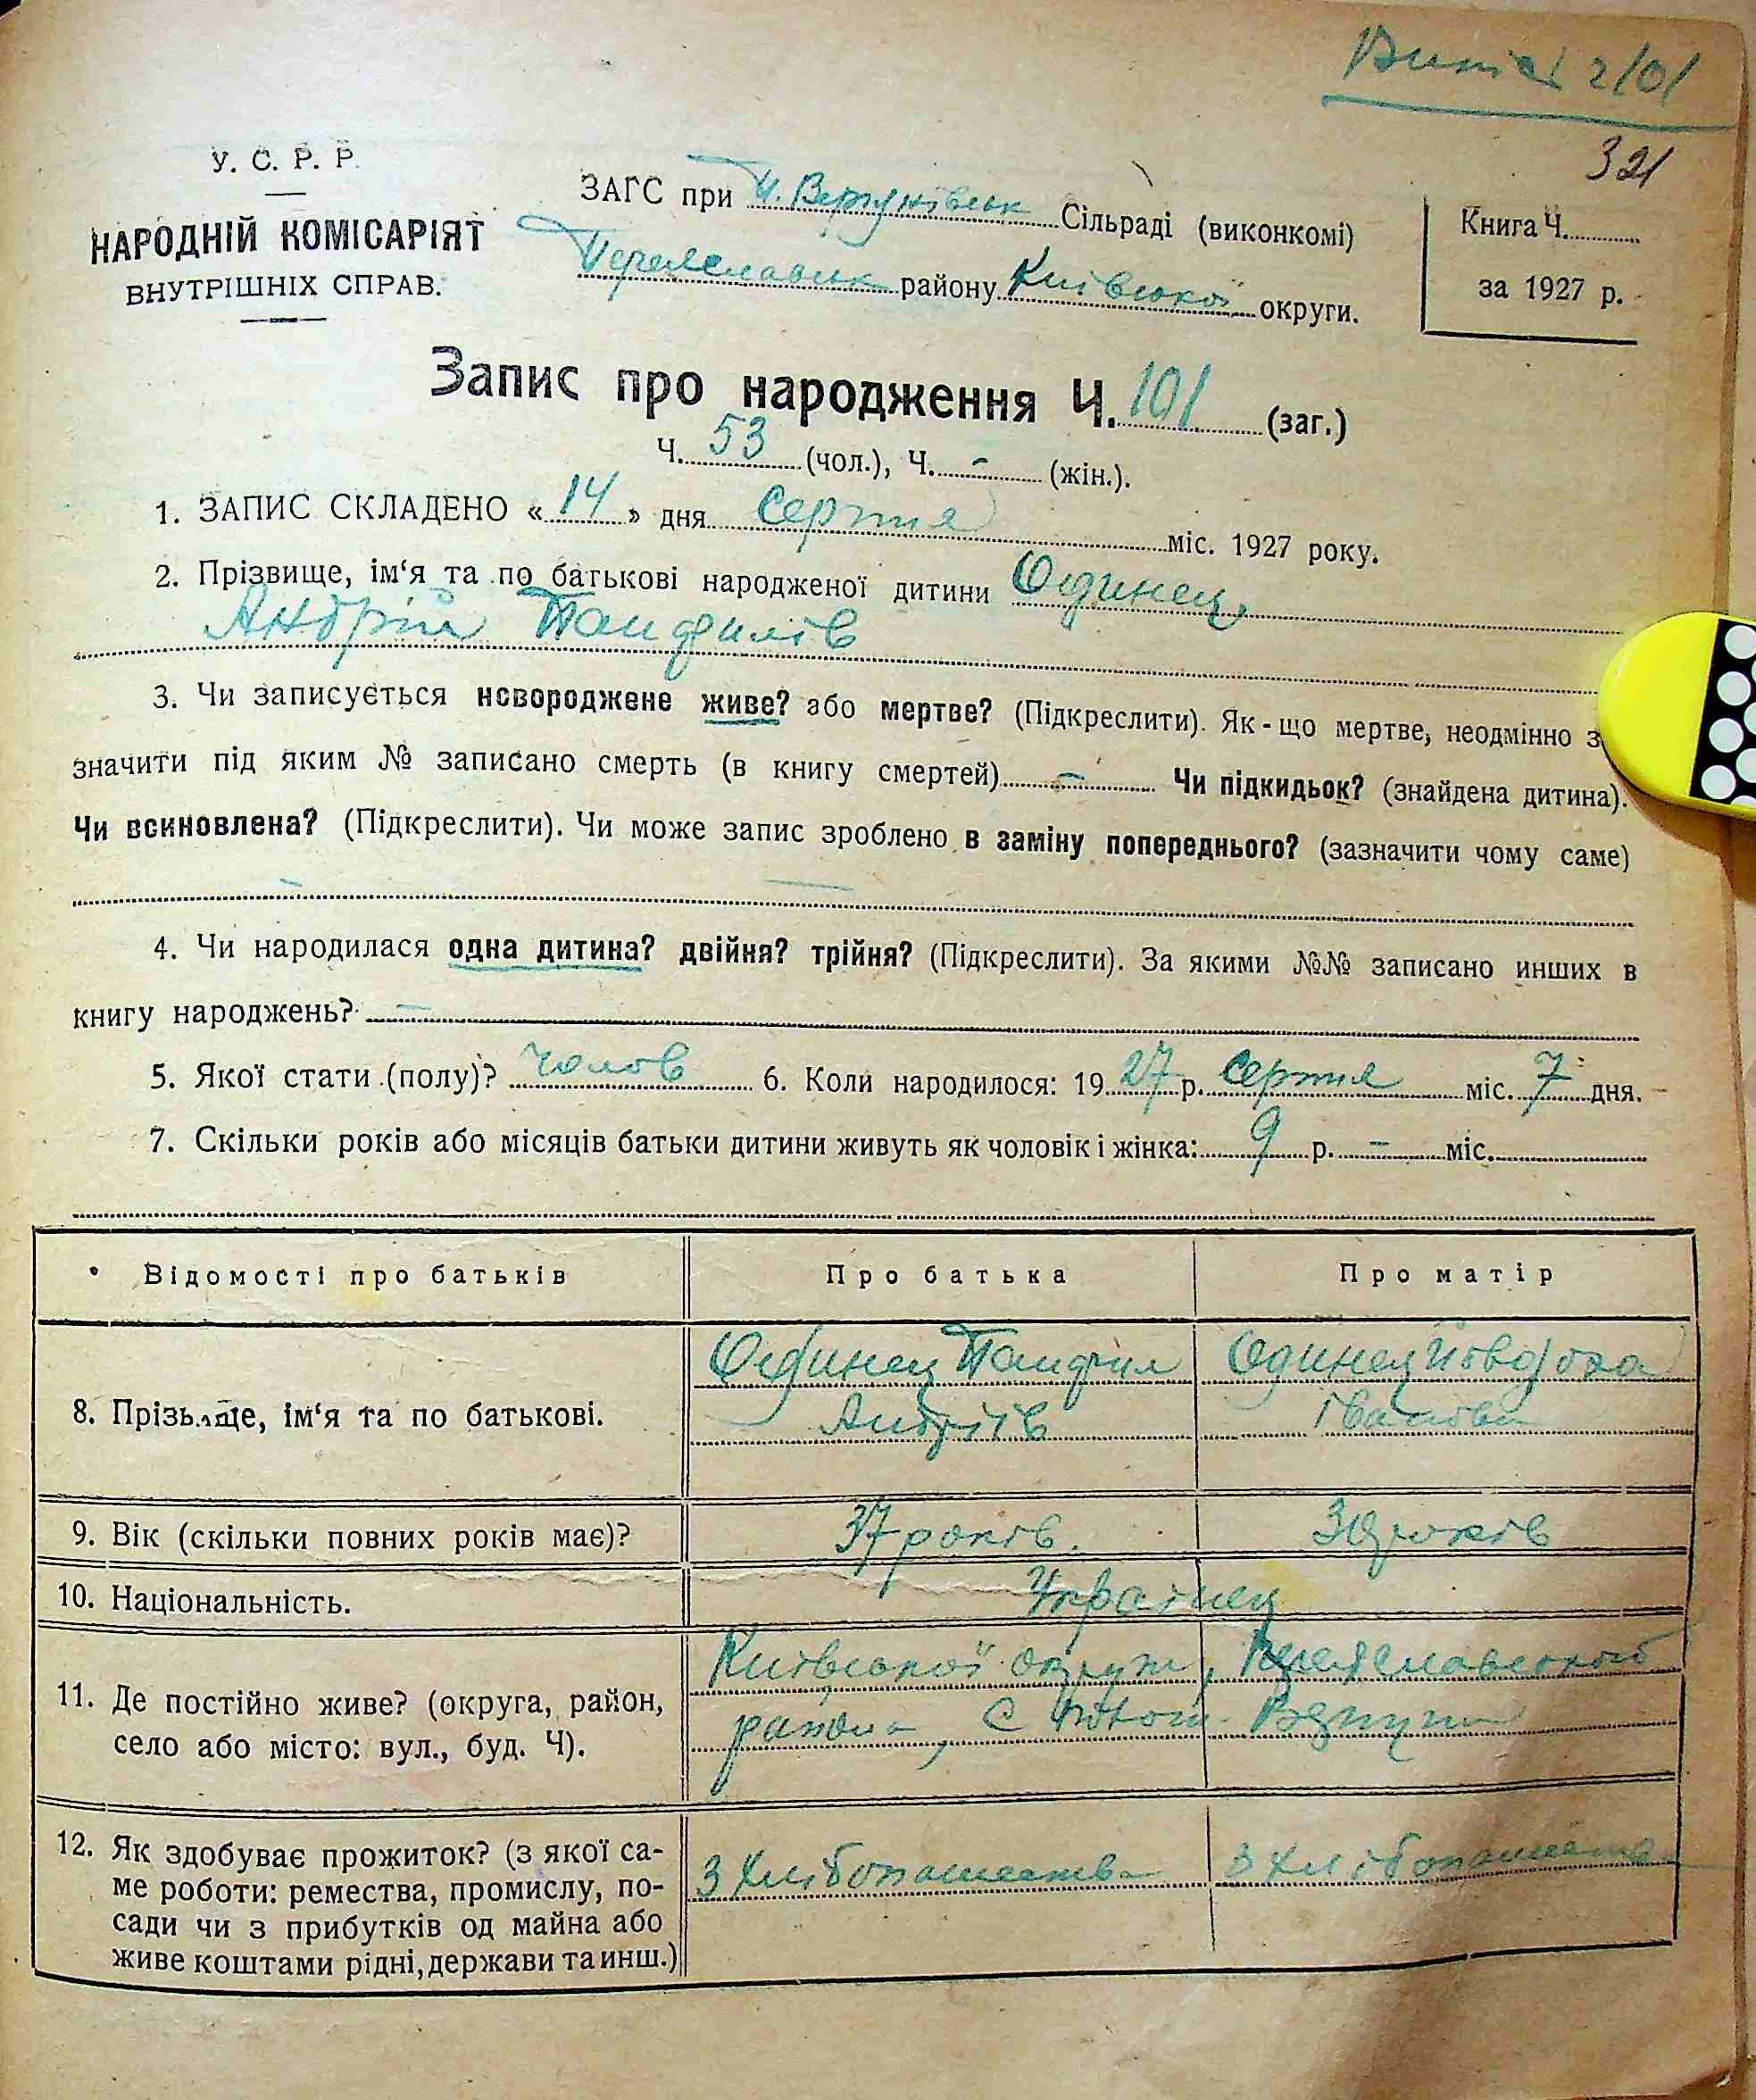 321
У. С. Р. Р.
НАРОДНІЙ КОМІСАРІЯТ
ВНУТРІШНІХ СПРАВ.
ЗАГС при Сільраді (виконкомі)
Переяславськ району Київської округи.
Книга Ч.
за 1927 р.
Запис про народження Ч. 101 (заг.)
Ч. 53 (чол.), Ч. - (жін.).
1. ЗАПИС СКЛАДЕНО «14» дня Серпня міс. 1927 року.
2. Прізвище, ім‘я та по батькові народженої дитини Одинец
Андрій Панфилів
3. Чи записується новороджене живе? або мертве? (Підкреслити). Як-що мертве, неодмінно
значити під яким № записано смерть (в книгу смертей) - Чи підкидьок? (знайдена дитина).
Чи всиновлена? (Підкреслити). Чи може запис зроблено в заміну попереднього? (зазначити чому саме)
4. Чи народилася одна дитина? двійня? трійня? (Підкреслити). За якими №№ записано инших в
книгу народжень? -
5. Якої стати (полу)? чолов 6. Коли народилося: 1927 р. Серпня міс. 7 дня.
7. Скільки років або місяців батьки дитини живуть як чоловік і жінка: 9 р. - міс.
Відомості про батьків Про батька Про матір
8. Прізвище, ім‘я та по батькові.
Одинец Панфил
Андріїв
Одинец
Іванова
9. Вік (скільки повних років має)? 37 років. років
10. Національність. Українец
11. Де постійно живе? (округа, район,
село або місто: вул., буд. Ч).
Київської округи, Переяславского
района, с
12. Як здобуває прожиток? (з якої са-
ме роботи: ремества, промислу, по-
сади чи з прибутків од майна або
живе коштами рідні, держави та инш.)
З хлібопашества З хлібопашества